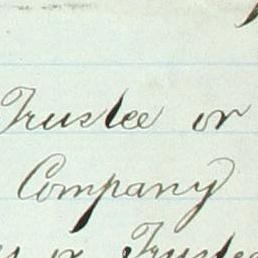 Trustee or
Company
or Trustee